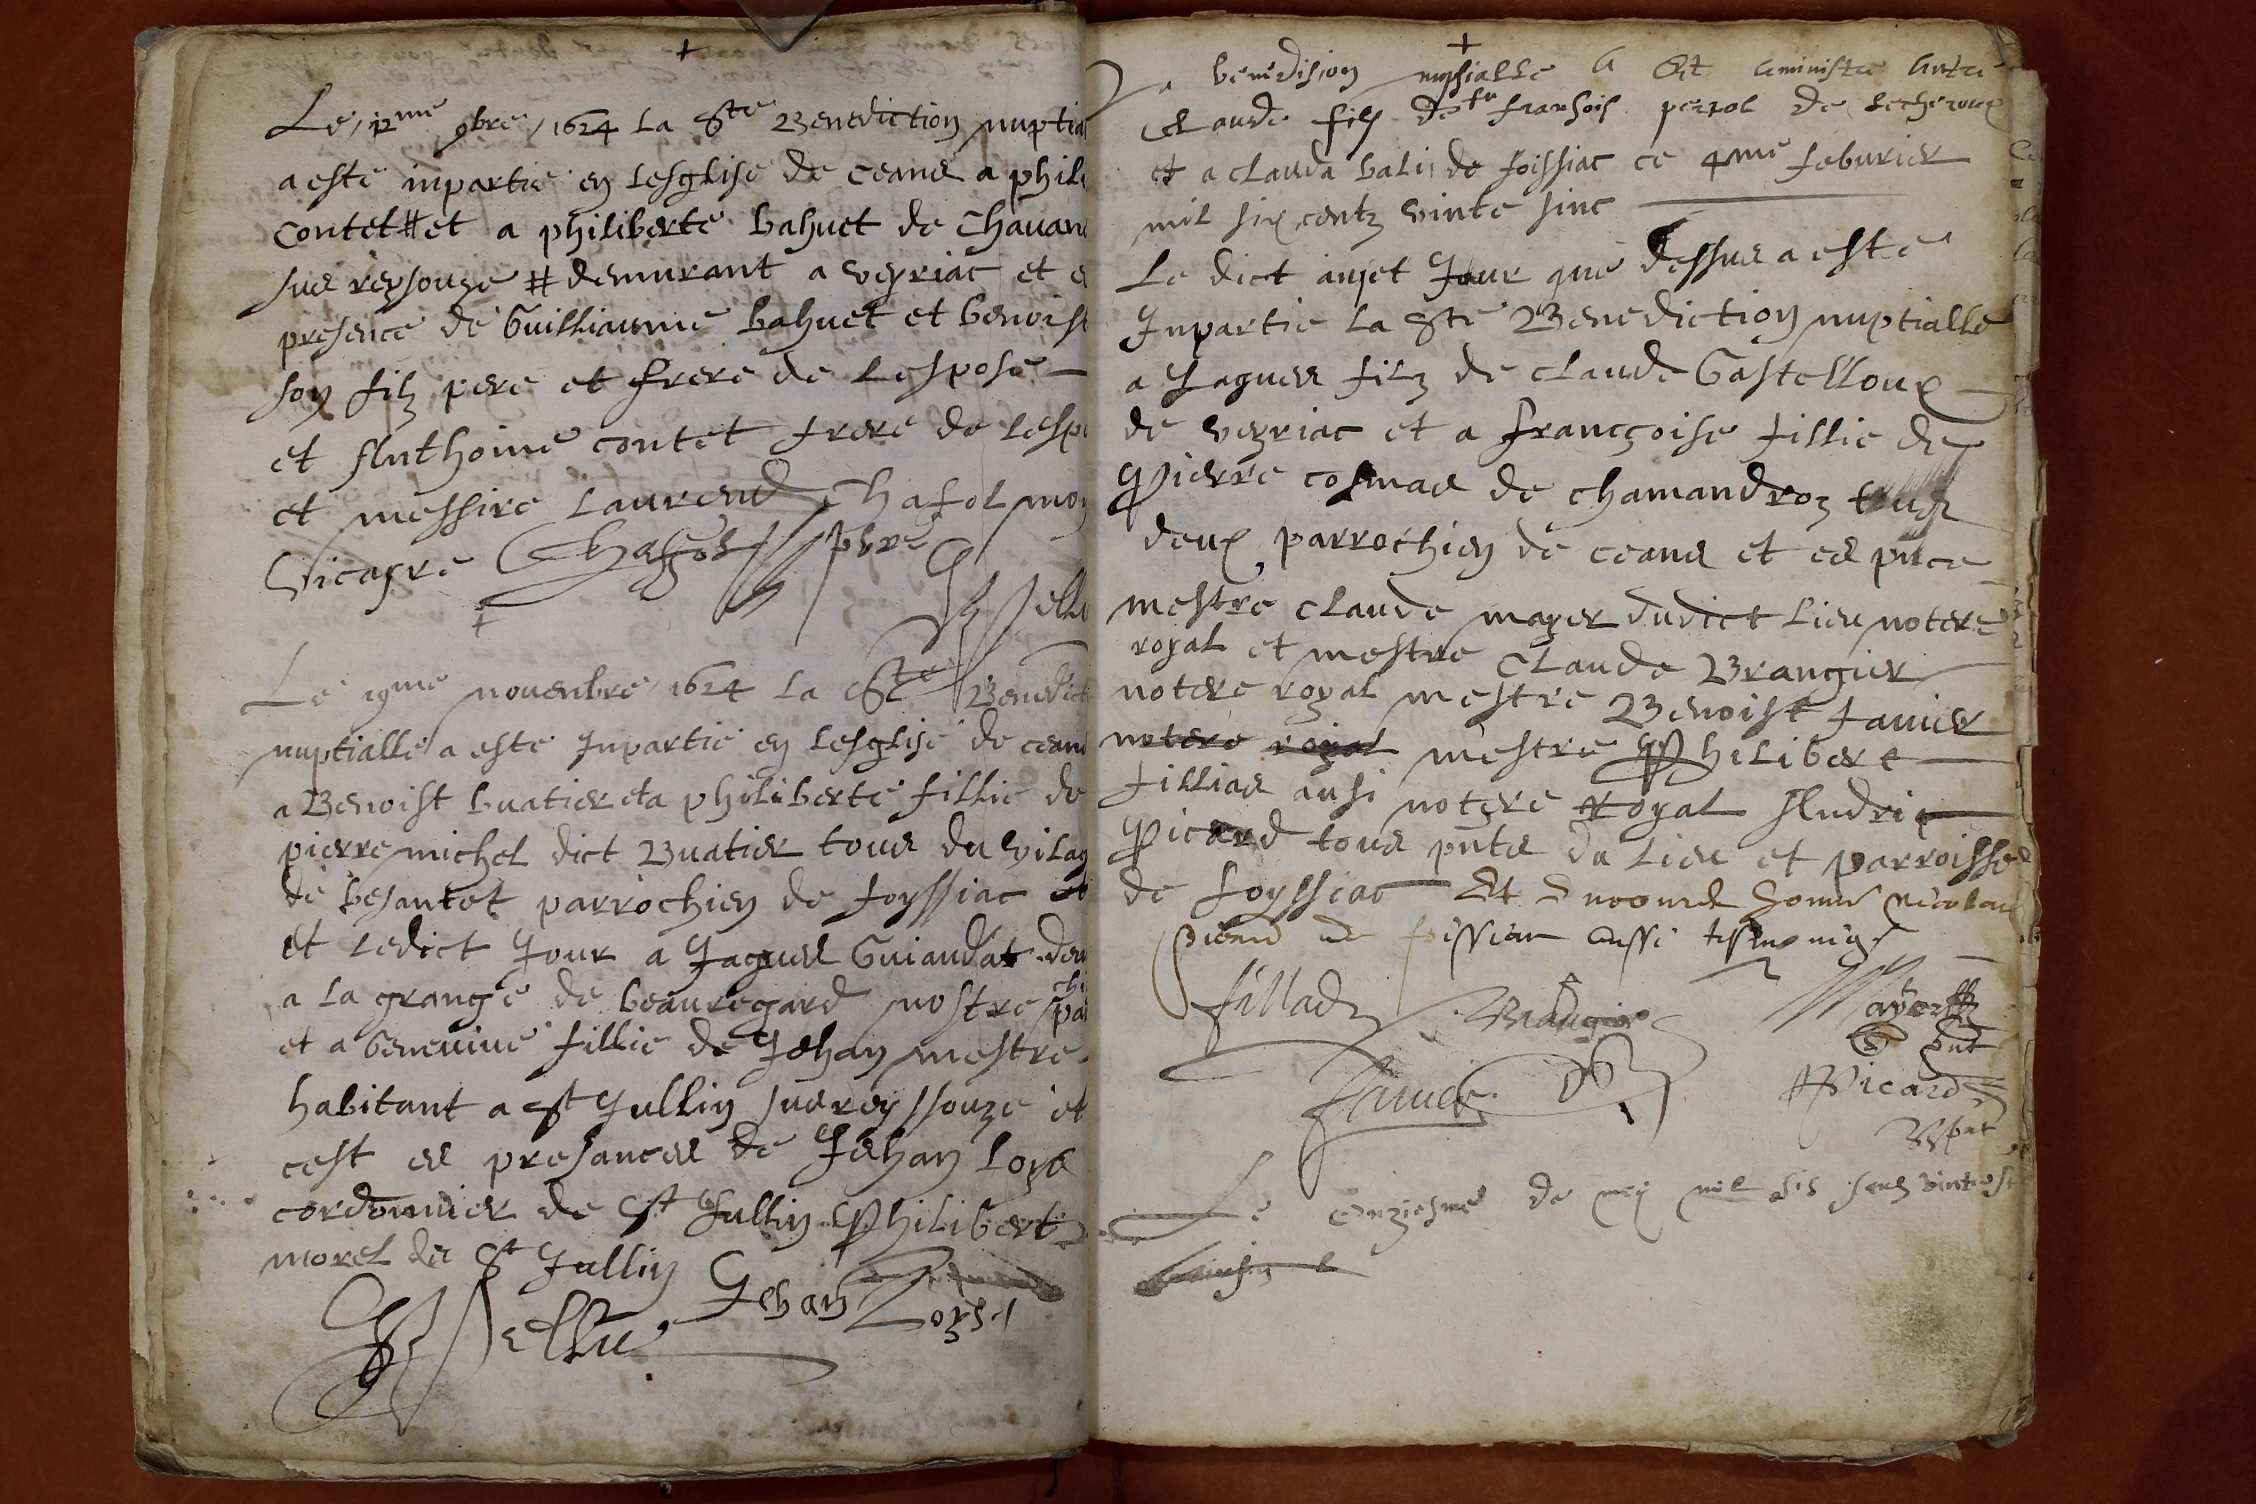 +
Le 12me 9bre 1624 la Ste Benediction nuptia
a este inpartie en lesglise de ceans a phili
contet # et a philiberte bahuet de Chauan
sus reysouze # demurant a veyriac et e
presence de Guilliaume bahuet et benoist
son filz pere et frere de lespose
et Anthoine contet frere de lesp
et messire Laurend Chafol mon
Vicayre Chaffol pbre
Le 19me nouenbre 1624 la Ste Benedict
nuptialle a este Inpartie en lesglise de cean
a Benoist buatier et a philiberte fillie de
pierre michel dict Buatier tous du vilag
de besantet parrochien de foyssiac et
et ledict Jour a Jaques Guiandat dem
a la grange de beauregard nostre pa
chi
et a Geneuiue fillie de Jehan mestre
habitant a St Jullin sus reyssouze et
cest es presances de Jehan Loys
cordonnier de St Jullin Philibert
morel de St Jullin
Jehan Loys
+
La benedision nupsialle a Et aministre antre
Claude fils de fu fransois perrol de lecheroux
et a clauda bali de foissiac ce 4me feburier
mil six centz vinte sinc
Le dict anjet Jour que dessus a este
Inpartie la Ste Benediction nuptialle
a Jaques filz de claude Gastelloux
de veyriac et a françoise fillie de
Pierre cosmas de chamandroz tous
deux parrochien de ceans et es pnce
mestre claude mayer dudict lieu notere
royal et mestre claude Brangier
notere royal mestre Benoist fauier
notere royal mestre Philibert
fillias ausi notere Royal Andri
Picard tous pnts du lieu et parroisse
de foyssiac Et
Picard de foissiac aussi
fillad Brangier Mayer
pnt
fauier Picard
pnt
Le onziesme de mey mil sis sens vinte